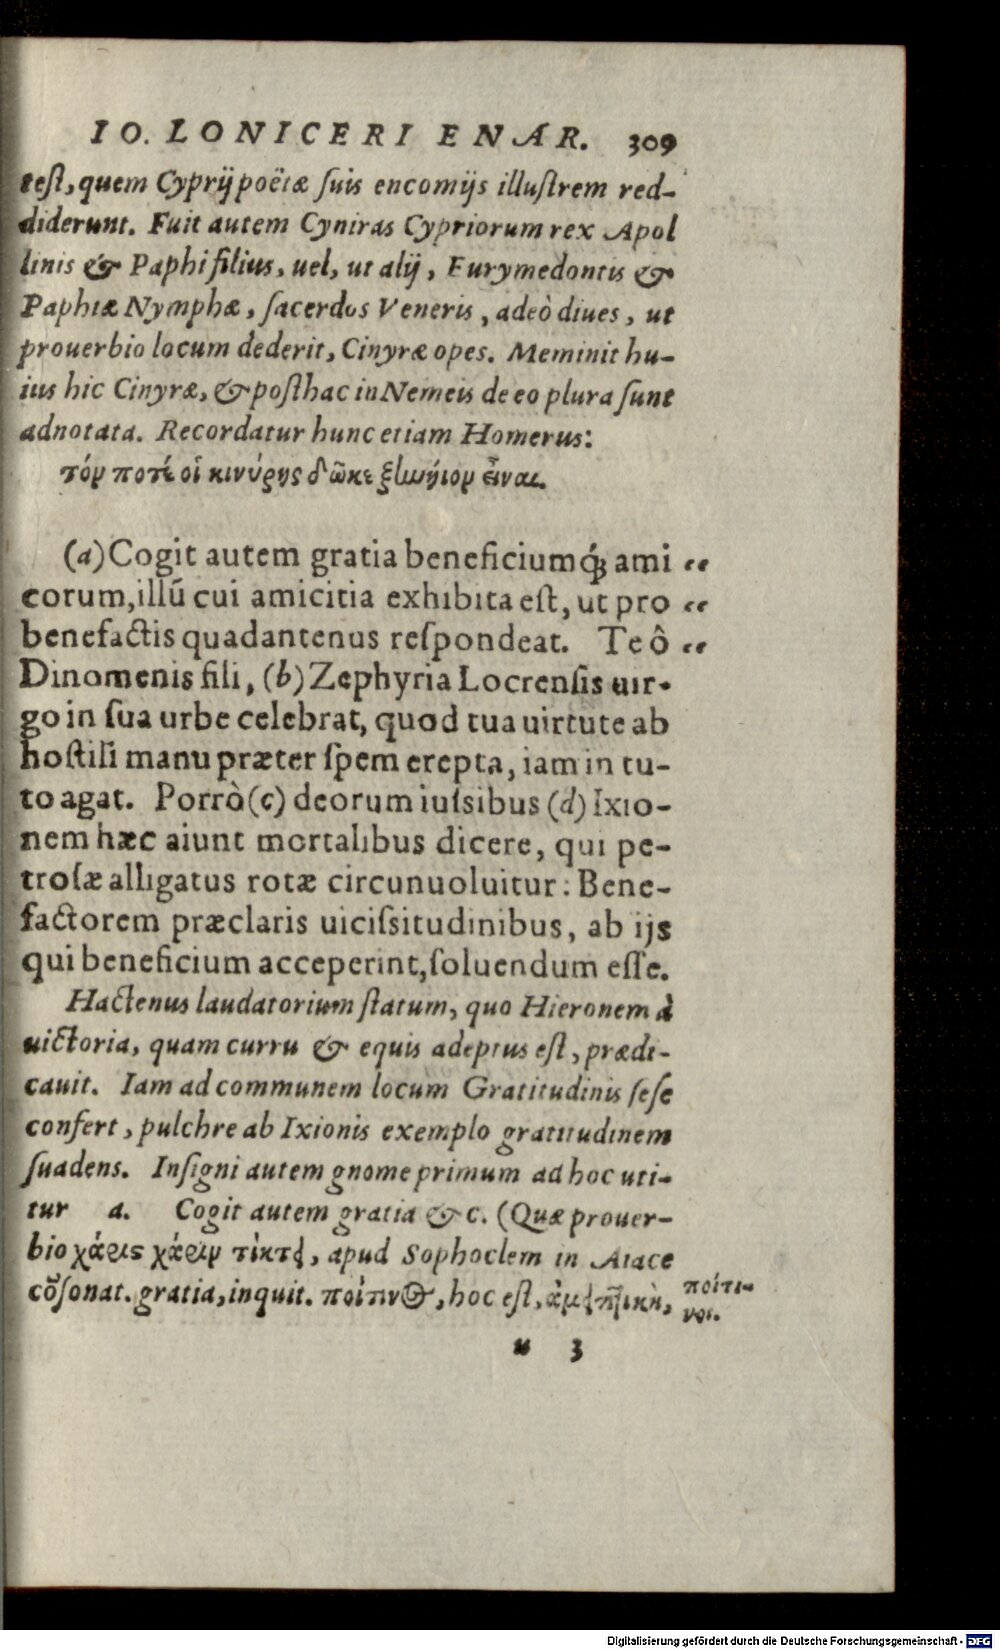 IO. LONICERI ENAR. 309
test, quem Cyprij poëtæ suis encomijs illustrem red-
diderunt. Fuit autem Cyniras Cypriorum rex Apol
linis & Paphi filius, uel, ut alij, Eurymedontis &
Paphiæ Nymphæ, sacerdos Veneris, adeò diues, ut
prouerbio locum dederit, Cinyræ opes. Meminit hu-
ius hic Cinyræ, & posthac in Nemeis de eo plura sunt
adnotata. Recordatur hunc etiam Homerus:
τόν ποτέ οἱ κινύρης δῶκε ξεινήιον εἶναι.
(a) Cogit autem gratia beneficiumq́ꝫ ami “
corum, illũ cui amicitia exhibita est, ut pro “
benefactis quadantenus respondeat. Te ô “
Dinomenis fili, (b) Zephyria Locrensis uir-
go in sua urbe celebrat, quod tua uirtute ab
hostili manu præter spem erepta, iam in tu-
to agat. Porrò (c) deorum iussibus (d) Ixio-
nem hæc aiunt mortalibus dicere, qui pe-
trosæ alligatus rotæ circunuoluitur: Bene-
factorem præclaris uicissitudinibus, ab ijs
qui beneficium acceperint, soluendum esse.
Hactenus laudatorium statum, quo Hieronem à
uictoria, quam curru & equis adeptus est, prædi-
cauit. Iam ad communem locum Gratitudinis sese
confert, pulchre ab Ixionis exemplo gratitudinem
suadens. Insigni autem gnome primum ad hoc uti-
tur a. Cogit autem gratia & c. (Quæ prouer-
bio χάρις χάριν τίκτει, apud Sophoclem in Aiace
cõsonat. gratia, inquit. ποίτινος, hoc est, ἀμειπτικὴ,
ποίτι-
νος.
u 3
Digitalisierung gefördert durch die Deutsche Forschungsgemeinschaft - DFG